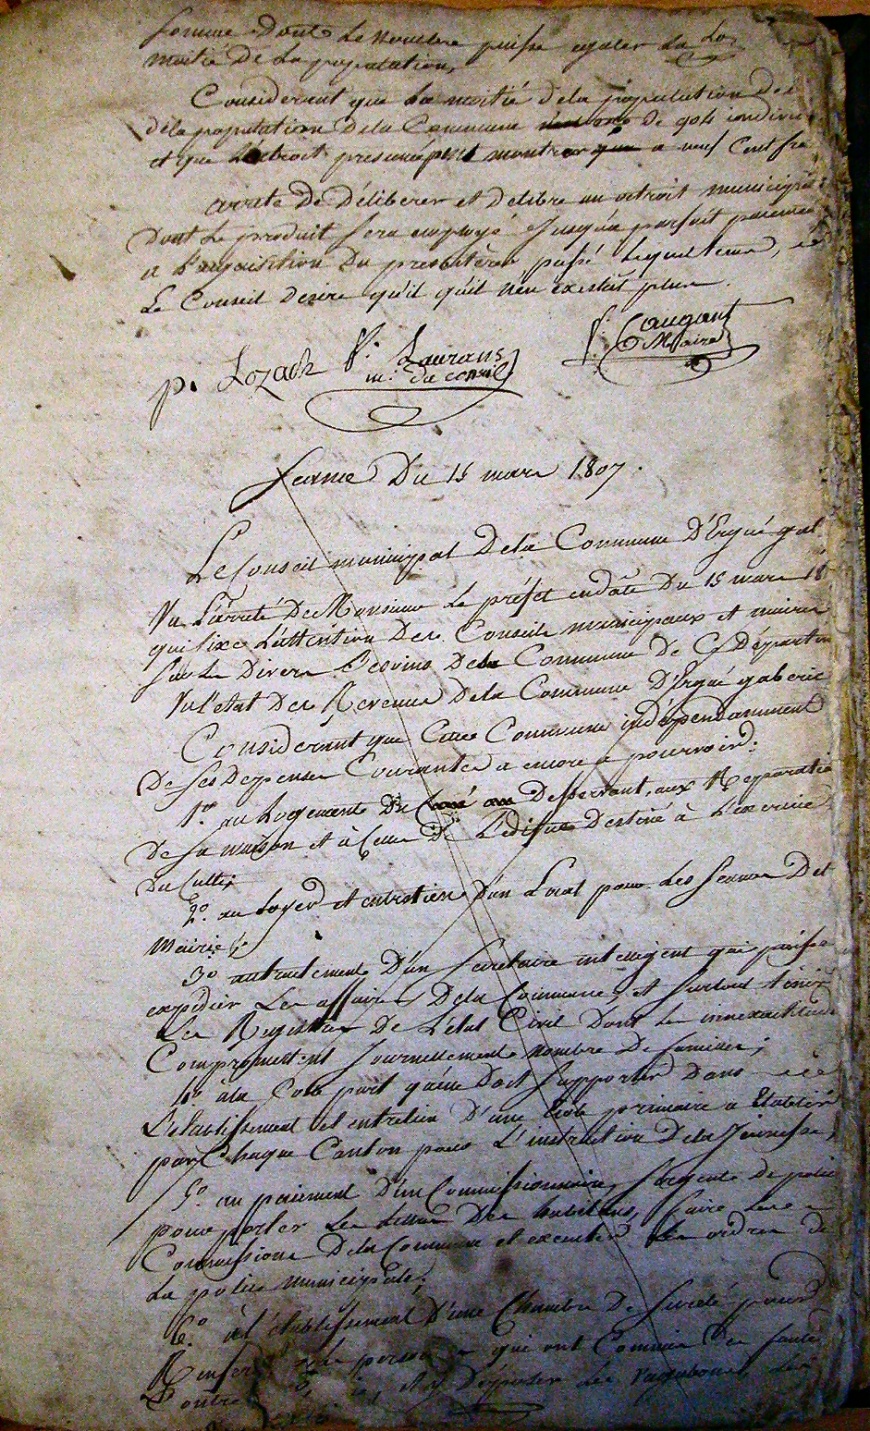 somme dont le nombre puisse egaler la
moitié de la population,
Considerant que la moitié dela population des
dela population dela Commune de 904 individus
et que presumé a neuf Cent fr
arrete de déliberer et delibre un octroit municipal
Dont le produit sera employé Jusqu'a parfait paiement
a l'aquisition Du presbitère passé lequel tems,
Le Conseil desire qu'il qu'il n'en existat plus.
p. Lozach f. Laurans
m. du conseil
Caugant
Maire
Seance Du 15 mars 1807.
Le Conseil municipal Dela Commune D'Ergué gab
Vu L'arreté De Monsieur Le préfet endate Du 15 mars 18
qui fixe L'attention Des Conseils municipaux et maires
sur Le Divers Besoins Dela Commune De Ce Département
Vu l'état Des Revenus Dela Commune D'Ergué gaberic
Considerant que Cette Commune indépendamment
De ses Depenses Courantes a encore a pourvoir:
1º. au Logement Du Desservant, aux Reparatio
De sa maison et à Celles De L'édifice Destiné à L'exercice
Du Culte;
2º. au Loyer et entretien D'un Local pour Les seances De
Mairie;
3º autraitement D'un Secretaire intelligent qui puisse
expedier Les affaires Dela Commune, et surtout tenir
Les Registres De L'état Civil Dont Les innexactitude
Compromettent Journellement nombre De familles;
4º. à la Cote part qu'elle Doit supporter Dans
L'établissement et entretien D'une Ecole primaire a Etablir
par Chaque Canton pour L'instruction Dela Jeunesse,
5º. au paiement D'un Commissionnaire, sergente de police
pour porter Les Lettres Des habitans, faire Les
Commissions Dela Commune et executer Les ordres de
La police municipale;
6º. à l'établissement D'une Chambre De sureté pour
Renfermer Les personnes qui ont Commis Des fautes
Contre et y Deposer Les vagabonds,